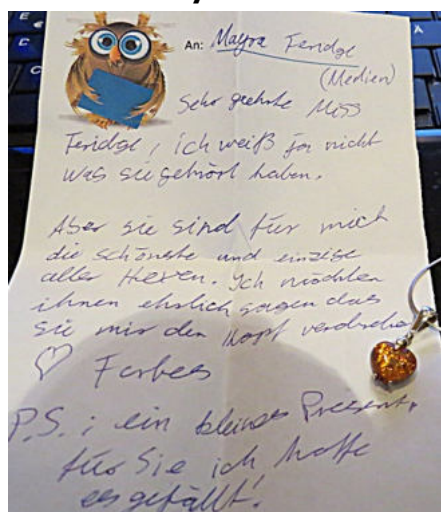 An: Mayra Feridge
(Medien)
Sehr geehrte Miss
Feridge, ich weiß ja nicht
was sie gehört haben.
Aber sie sind für mich
die schönste und einzige
aller Hexen. Ich möchten
ihnen ehrlich sagen das
sie mir den Kopf verdrehen
♡ Forbes
P.S.: ein kleines Present,
für Sie ich hoffe
es gefällt!